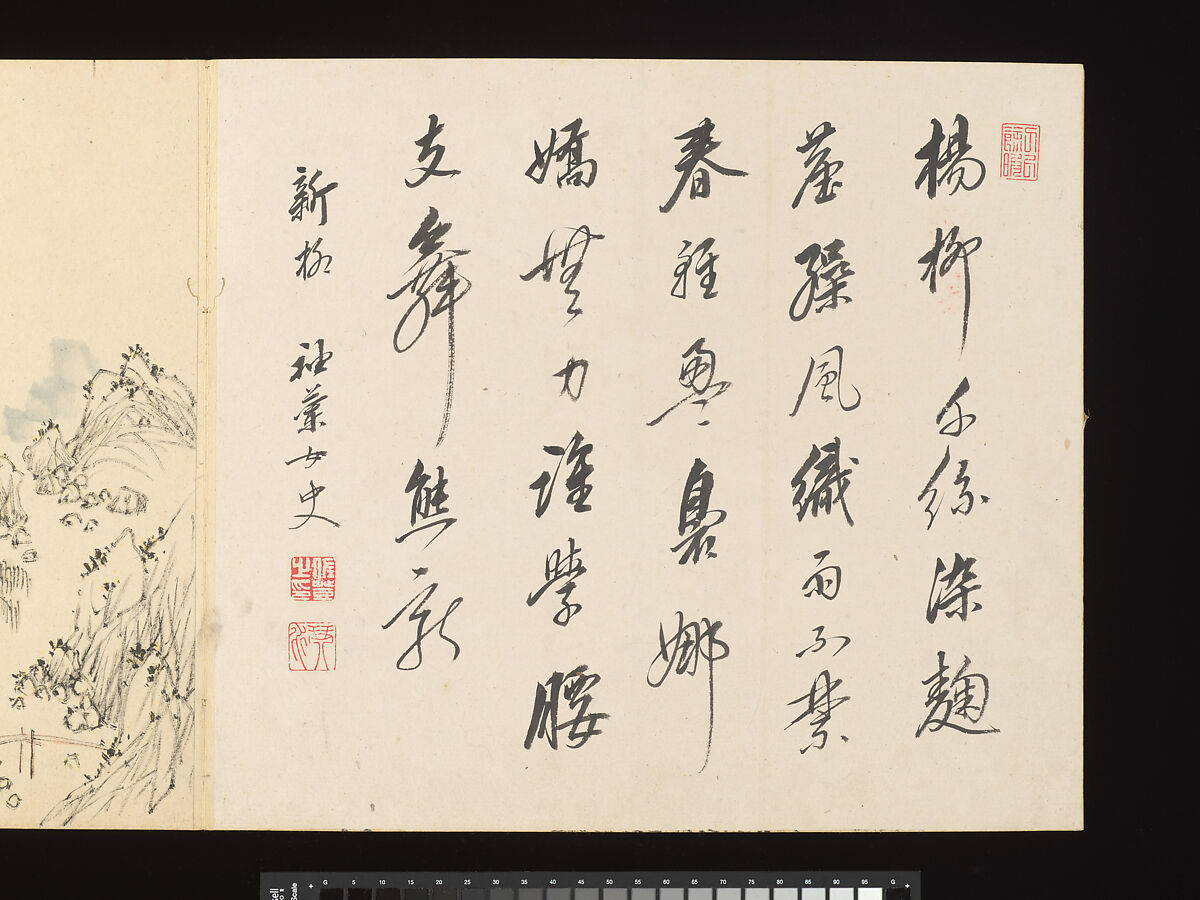 楊柳千絲染麹
塵繰風織雨不禁
春裊娜
嬌無力誰學腰
支舞態新
新柳 袖蘭女史
G 5 10 15 20 25 30 35 40 45 50 55 60 65 70 75 80 85 90 95 G
Scale